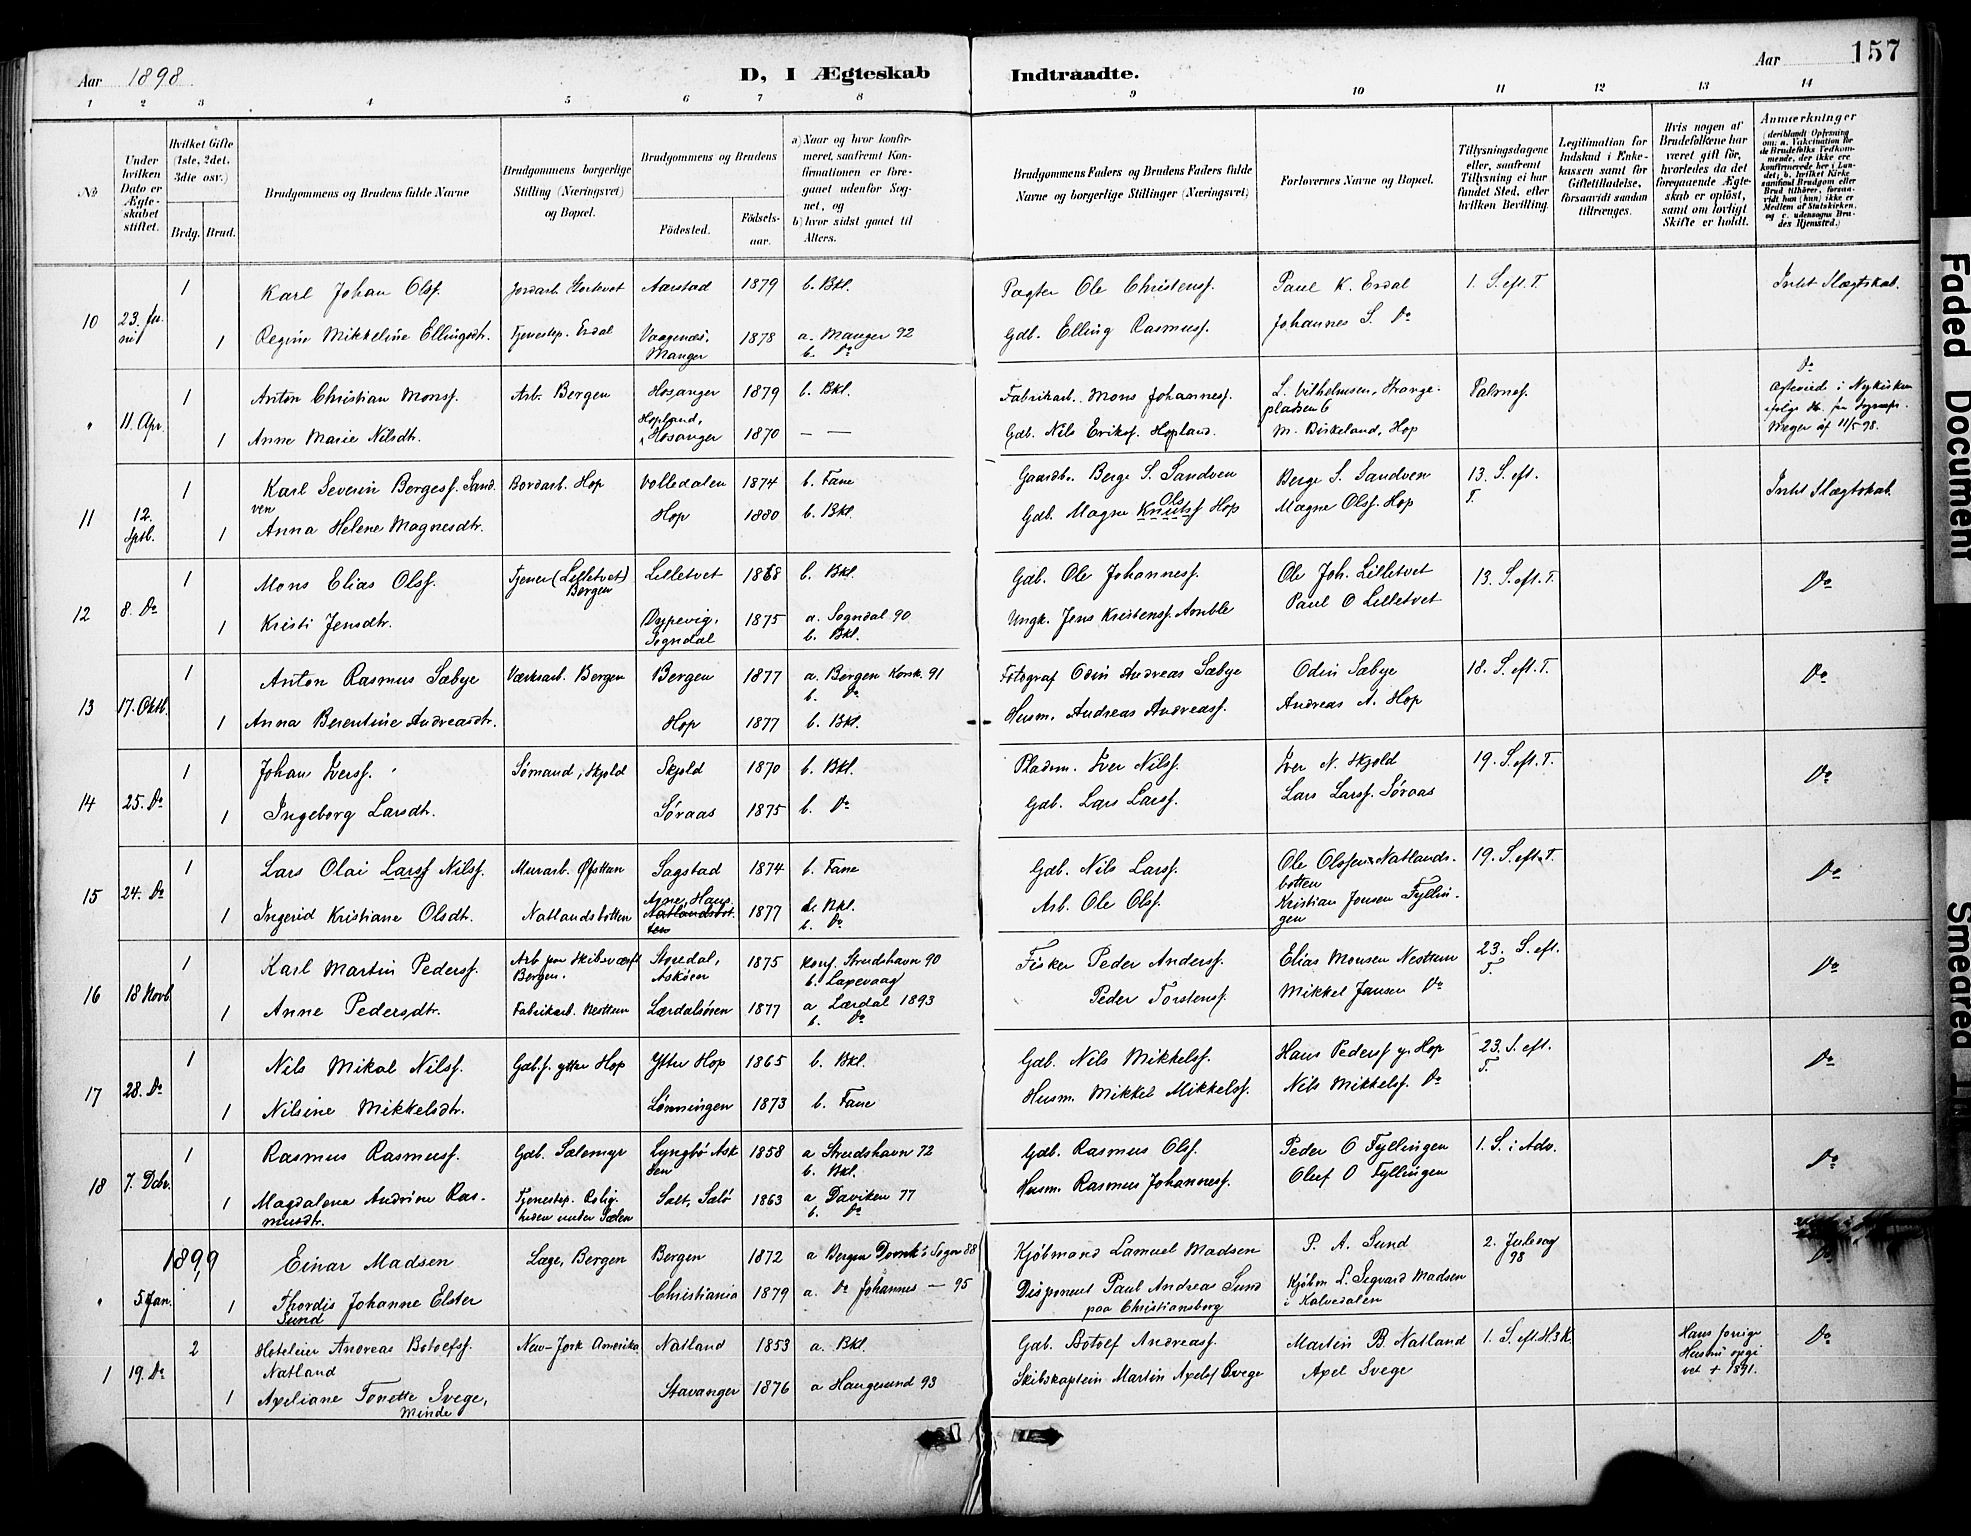 Aar 1898
D, I Ægteskab Indtraadte.
Aar 157
1 2 3 4 5 6 7 8 9 10 11 12 13 14
No
Under hvilken Dato er Ægteskabet stiftet.
Hvilket Gifte (1ste, 2det, 3die osv.)
Brdg. Brud.
Brudgommens og Brudens fulde Navne
Brudgommens borgerlige Stilling (Næringsvei) og Bopæl.
Brudgommens og Brudens
Födested. Födselsaar.
a) Naar og hvor konfirmeret, saafremt Konfirmationen er foregaaet udenfor Sognet, og
b) hvor sidst gaaet til Alters.
Brudgommens Faders og Brudens Faders fulde Navne og borgerlige Stillinger (Næringsvei)
Forlovernes Navne og Bopæl.
Tillysningsdagene eller, saafremt Tillysning ei har fundet Sted, efter hvilken Bevilling.
Legitimation for Indskud i Enkekassen samt for Giftetilladelse, forsaavidt saadan tiltrænges.
Hvis nogen af Brudefolkene har været gift för, hvorledes da det foregaaende Ægteskab er oplöst, samt om lovligt Skifte er holdt.
Anmærkninger (deriblandt Oplysning om: a. Vakcination for de Brudefolks Vedkommende, der ikke ere konfirmerede her i Landet; b. hvilket Kirkesamfund Brudgom eller Brud tilhörer, forsaavidt han (hun) ikke er Medlem af Statskirken, og c. udensogns Brudes Hjemsted.)
10 23. Juni 1 Karl Johan Olsf. Jordarb. Aarstad 1879 b. Bkl. Pagter Ole Christensf. Paul K. Erdal 1. S. eft. T. Intet Slægtskab.
1 Regine Mikkeline Ellingsdtr. Tjenestep. Erdal Vaagenæs, Manger 1878 a. Manger 92 b. Do Gdb. Elling Rasmusf. Johannes S. Do
" 11. Apr. 1 Anton Christian Monsf. Arb. Bergen Hosanger 1879 b. Bkl. Fabrikarb. Mons Johannesf. L. Vilhelmsen, Strangepladsen 6 Palmes. Do
1 Anne Marie Nilsdtr. Hopland, Hosanger 1870 — — Gdb. Nils Eriksf. Hopland. M. Birkeland, Hop
Ægteviet i Nykirken ifølge fra af 11/5 98.
11 12. Sptb. 1 Karl Severin Bergesf. Sandven Bordarb. Hop Volledalen 1874 b. Fane Gaardb. Berge S. Sandven Berge S. Sandven 13. S. eft. T. Intet Slægtskab.
1 Anna Helene Magnesdtr. Hop 1880 b. Bkl. Gdb. Magne Knutsf Ols Hop Magne Olsf. Hop
12 8. Do 1 Mons Elias Olsf. Tjener (Lilletvet) Bergen Lilletvet 1868 b. Bkl. Gdb. Ole Johannesf. Ole Joh. Lilletvet 13. S. eft. T. Do
1 Kristi Jensdtr. Dypevig, Sogndal 1875 a. Sogndal 90 b. Bkl. Ungk. Jens Kristensf. Amble Paul O Lilletvet
13 17. Oktb. 1 Anton Rasmus Sæbye Værksarb. Bergen Bergen 1877 a. Bergen Korsk. 91 b. Do Fotograf Odin Andreas Sæbye Odin Sæbye 18. S. eft. T. Do
1 Anna Berentine Andreasdtr. Hop 1877 b. Bkl. Husm. Andreas Andreasf. Andreas A. Hop
14 25. Do 1 Johan Iversf. Sømand, Skjold Skjold 1870 b. Bkl. Pladsm. Iver Nilsf. Iver N. Skjold 19. S. eft. T. Do
1 Ingeborg Larsdtr. Søraas 1875 b. Do Gdb. Lars Larsf. Lars Larsf. Søraas
15 24. Do 1 Lars Olai Larsf Nilsf. Murarb. Øfsttun Sagstad 1874 b. Fane Gdb. Nils Larsf. Ole Olsen Natlandsbotten 19. S. eft. T. Do
1 Ingerid Kristiane Olsdt. Natlandsbotten Agne, Haus. Natlandsbotten 1877 a. Bkl. b. Do Arb. Ole Olsf. Kristian Jensen Fyllingen
16 18 Novb 1 Karl Martin Pedersf. Arb paa Skibsværft Bergen. Strædal, Askøen 1875 konf. Strudshavn 90 b. Laxevaag Fisker Peder Andersf. Elias Monsen Nesttun 23. S. eft. T. Do
1 Anne Pedersdtr. Fabrikarb. Nesttun Lærdalsören 1877 a Lærdal 1893 b. Do Peder Torstensf. Mikkel Jansen Do
17 28. Do 1 Nils Mikal Nilsf. Gdb.f. ytter Hop Ytter Hop 1865 b. Bkl. Gdb. Nils Mikkelsf. Hans Pedersf y. Hop 23. S. eft. T. Do
1 Nilsine Mikkelsdtr. Lønningen 1873 b. Fane Husm. Mikkel Mikkelsf. Nils Mikkelsf. Do
18 7. Dcbr. 1 Rasmus Rasmusf. Gdb. Sælemyr Lyngbö Askøen 1858 a Strudshavn 72 b. Bkl. Gdb. Rasmus Olsf. Peder O Fyllingen 1. S. i Adv. Do
1 Magdalena Andrine Rasmusdtr. Tjenestep. Roligheden under Sælen Salt, Selö 1863 a Daviken 77 b. Do Husm. Rasmus Johannesf. Oluf O Fyllingen
1899
" 5 Jan. 1 Einar Madsen Læge, Bergen Bergen 1872 a Bergen Domk's Sogn 88 Kjöbmand Samuel Madsen P. A. Sund 2. Juledag 98 Do
1 Thordis Johanne Elster Sund Christiania 1879 a. Do Johannes — 95 Disponent Paul Andreas Sund paa Christiansborg Kjöbm S. Segvard Madsen i Kalvedalen
1 19. Do 2 Hoteleier Andreas Botolfsf. Natland New-York Amerika. Natland 1853 a. Bkl. Gdb. Botolf Andreasf. Martin B. Natland 1. S. eft. H3K. Hans forrige Hustru opgivet + 1891. Do
1 Axeliane Tonette Svege, Minde Stavanger 1876 a Haugesund 93 Skibskaptein Martin Axelsf Svege Axel Svege
Faded Document
Smeared